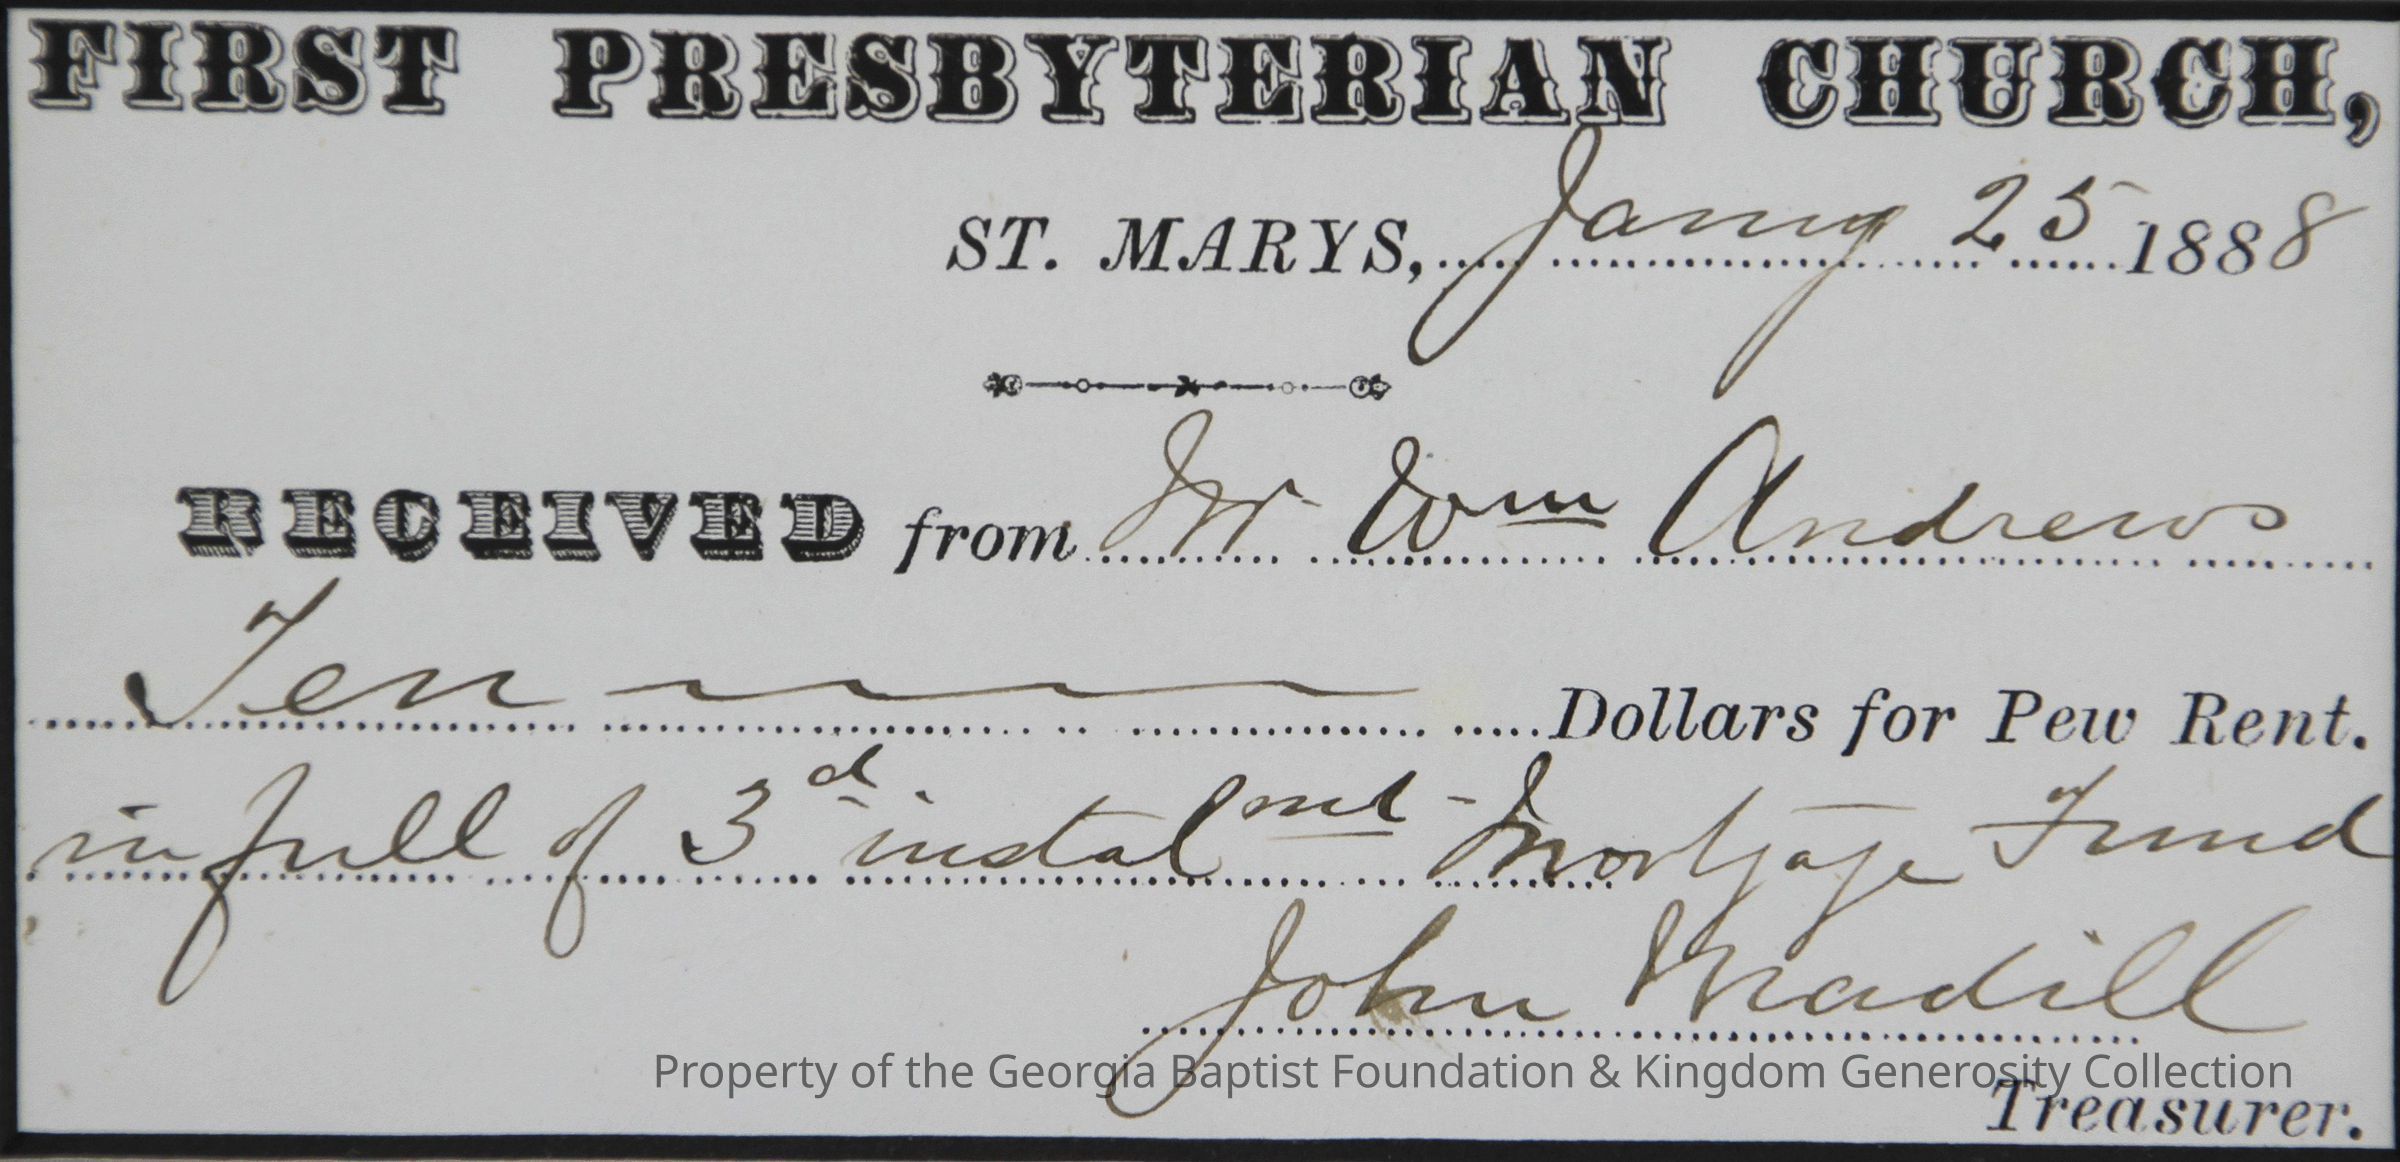 FIRST PRESBYTERIAN CHURCH,
ST. MARYS, Jany 25 1888
RECEIVED from Mr Wm Andrews
Ten Dollars for Pew Rent.
in full of 3d instalmt - Mortgage Fund
John Madill
Property of the Georgia Baptist Foundation & Kingdom Generosity Collection
Treasurer.